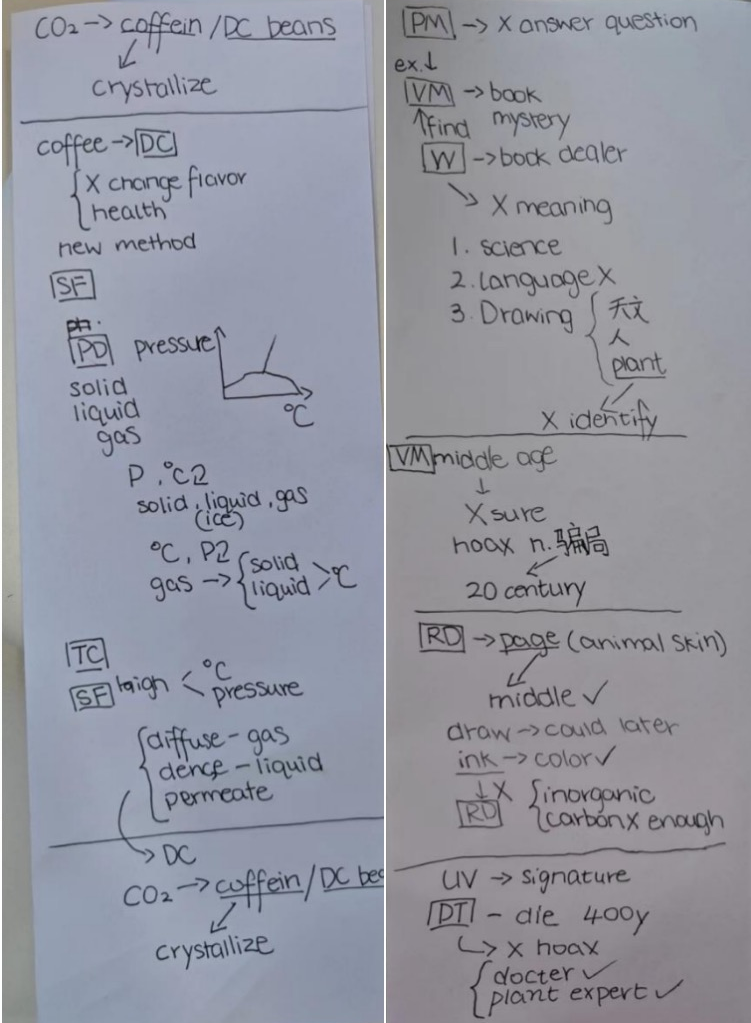 CO2 → coffein / DC beans
crystallize
coffee → DC
X change flavor
health
new method
SF
PD pressure
solid
liquid
gas
°C
P, °C2
solid, liquid, gas
(ice)
°C, P2
gas → solid
liquid > °C
TC
SF high < °C
pressure
diffuse - gas
dence - liquid
permeate
→ DC
CO2 → coffein / DC bea
crystallize
PM → X answer question
ex.↓
VM → book
↑find mystery
W → book dealer
X meaning
1. science
2. language X
3. Drawing
天文
人
plant
X identify
VM middle age
↓
X sure
hoax n. 骗局
20 century
RD → page (animal skin)
middle ✓
draw → could later
ink → color ✓
↓ X inorganic
RD carbon X enough
UV → signature
DT - die 400y
↳ X hoax
docter ✓
plant expert ✓